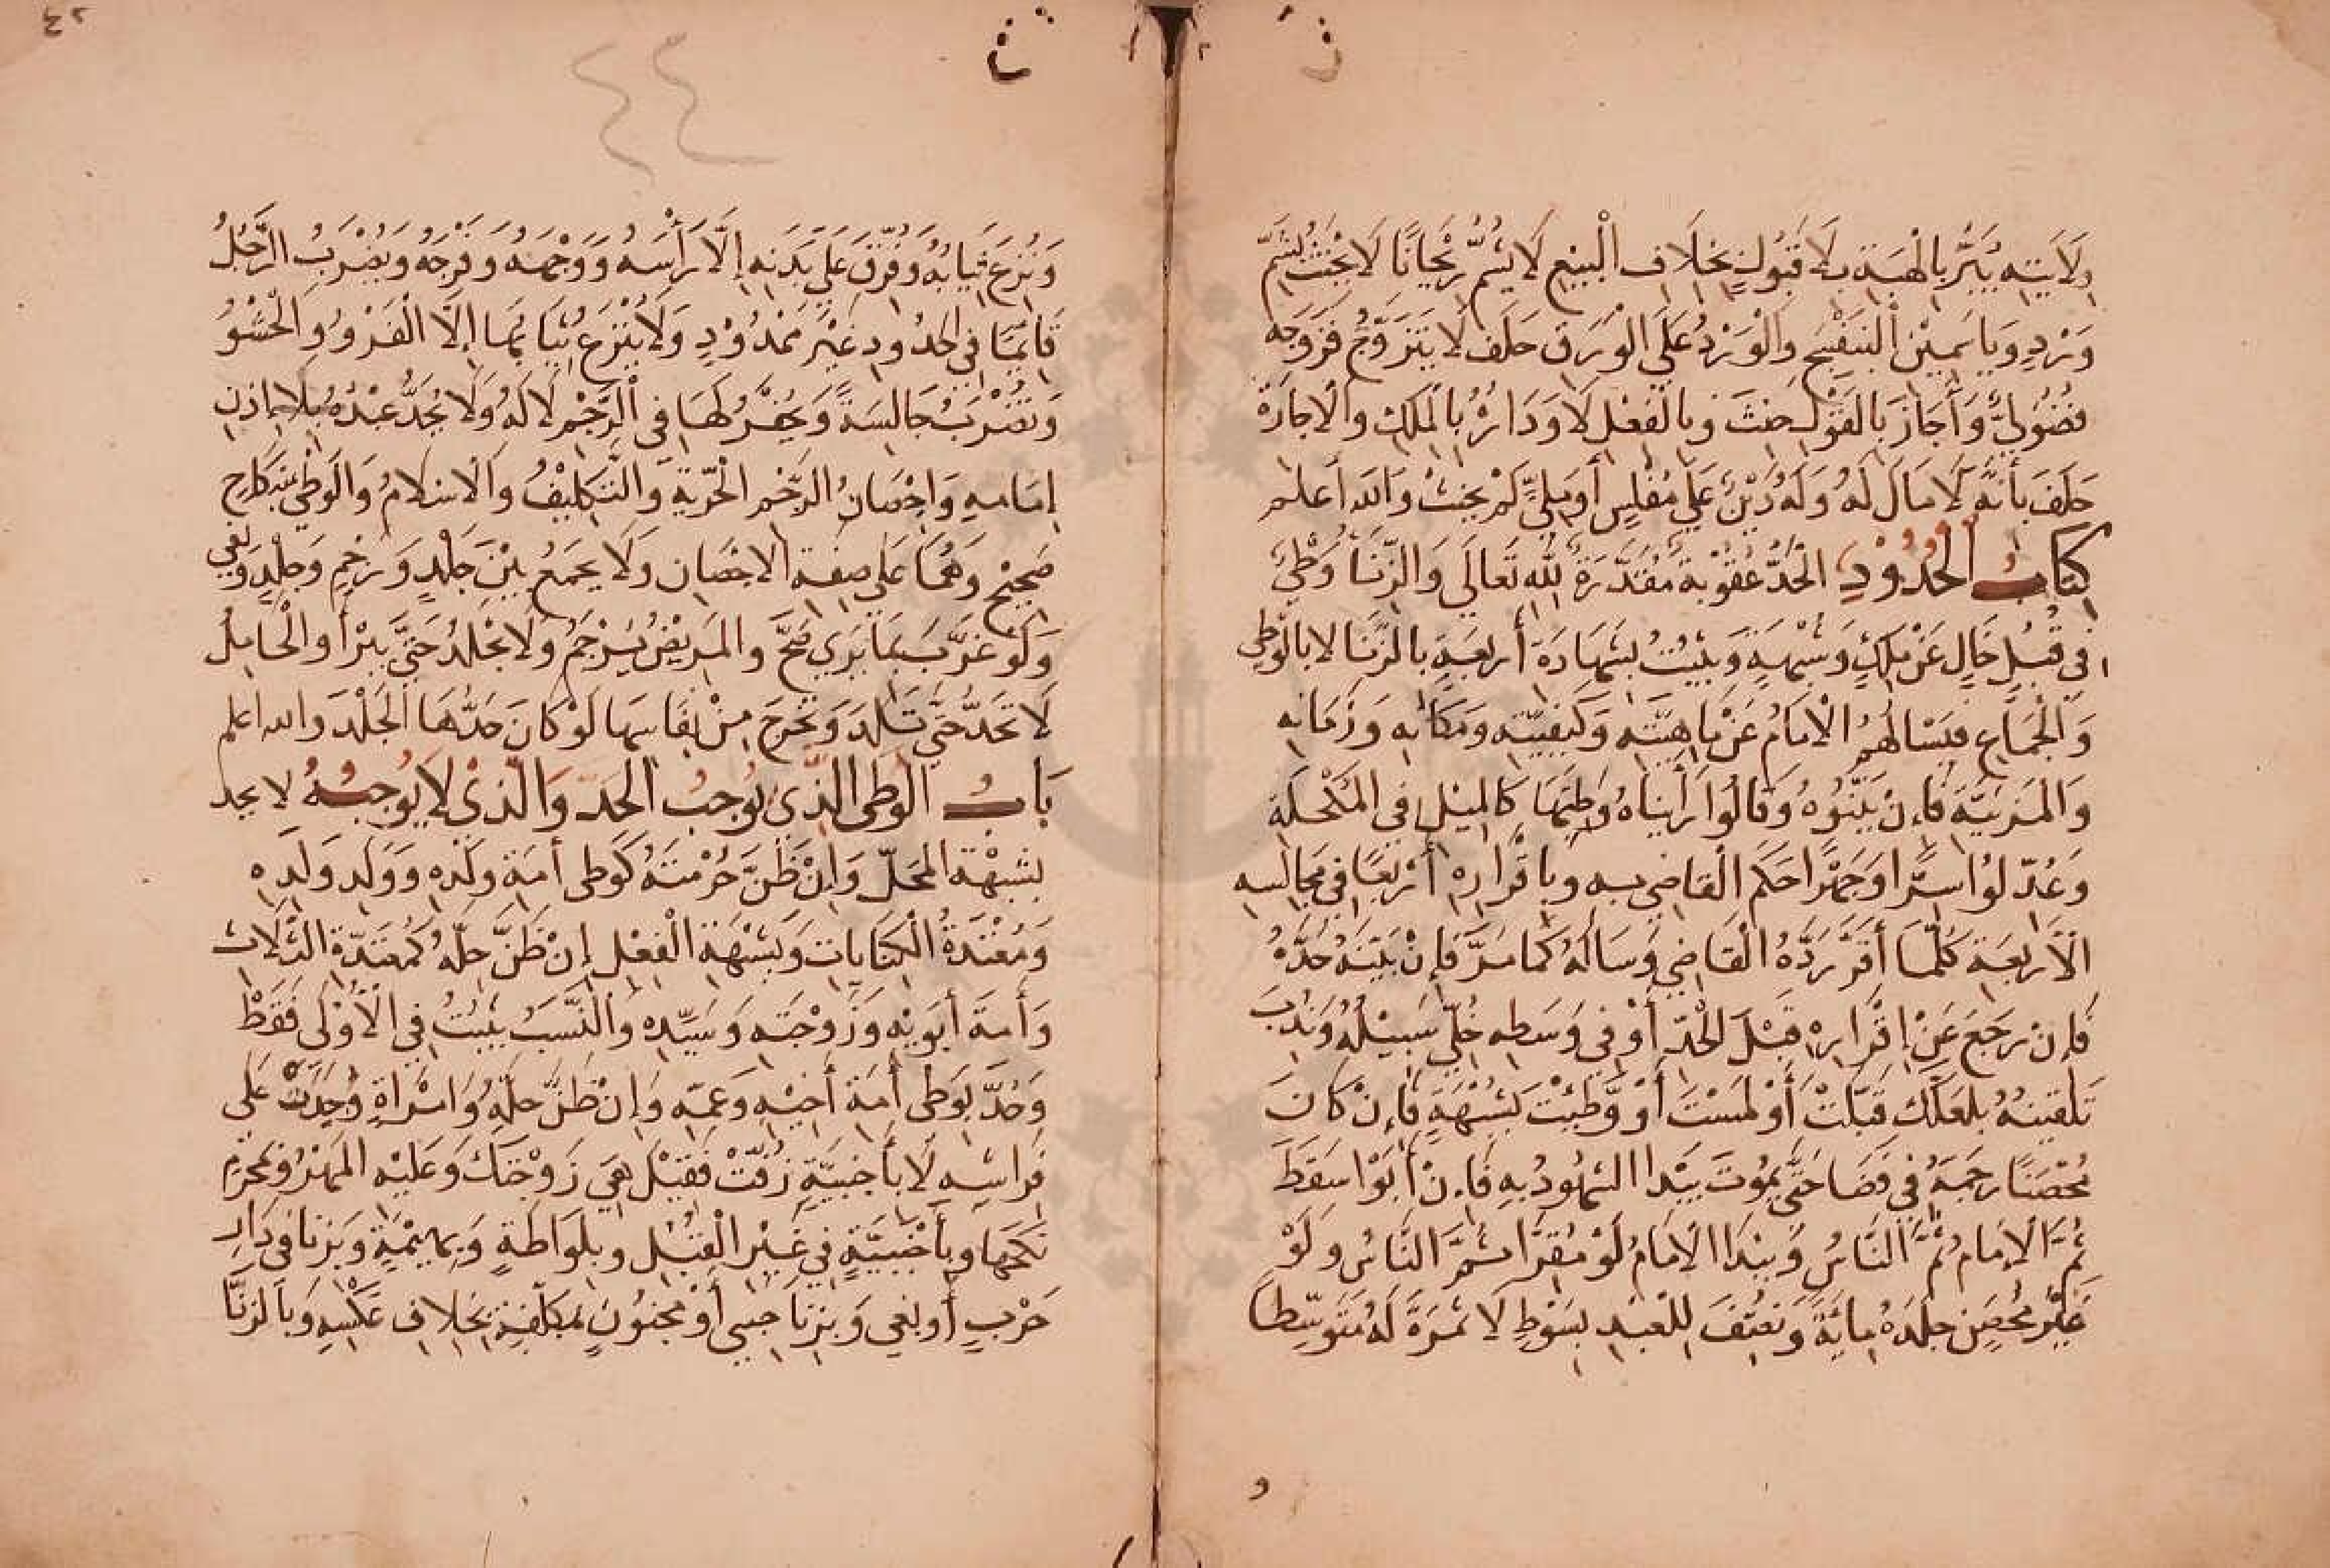 وِلَايَتِهِ يَبَرُّ بِالْهِبَةِ بِلَا قَبُولٍ بِخِلَافِ الْبَيْعِ لَا يَشُمُّ رَيْحَانًا لَا يَحْنَثُ بِشَمِّ
وَرْدٍ وَيَاسَمِيْنٍ الْبَنَفْسَجُ وَالْوَرْدُ عَلَى الْوَرَقِ حَلَفَ لَا يَتَزَوَّجُ فَزَوَّجَهُ
فُضُوْلِيٌّ وَأَجَازَ بِالْقَوْلِ حَنِثَ وَبِالْفِعْلِ لَا وَدَارُهُ بِالْمِلْكِ وَالْاِجَارَةِ
حَلَفَ بِأَنَّهُ لَا مَالَ لَهُ وَلَهُ دَيْنٌ عَلَى مُفْلِسٍ أَوْ مَلِيٍّ لَمْ يَحْنَثْ وَاللّٰه أَعلم
كِتَابُ الْحُدُوْدِ الْحَدُّ عُقُوْبَةٌ مُقَدَّرَةٌ لِلّٰهِ تَعَالَى وَالزِّنَا وَطْيٌ
فِي قُبُلٍ خَالٍ عَنْ مِلْكٍ وَشُبْهَةٍ وَيَثْبُتُ بِشَهَادَةِ أَرْبَعَةٍ بِالزِّنَا لَا بِالْوَطِي
وَالْجِمَاعِ فَيَسْأَلُهُمُ الْاِمَامُ عَنْ مَاهِيَّتِهِ وَكَيْفِيَّتِهِ وَمَكَانِهِ وَزَمَانِهِ
وَالْمَزْنِيَّةِ فَاِنْ بَيَّنُوْهُ وَقَالُوْا رَأَيْنَاهُ وَطِئَهَا كَالْمِيْلِ فِي الْمُكْحُلَةِ
وَعُدِّلُوْا سِرًّا وَجَهْرًا حَكَمَ الْقَاضِي بِهِ وَبِاِقْرَارِهِ أَرْبَعًا فِي مَجَالِسِهِ
الْأَرْبَعَةِ كُلَّمَا أَقَرَّ رَدَّهُ الْقَاضِي وَسَأَلَهُ كَمَا مَرَّ فَإِنْ بَيَّنَهُ حُدَّهُ
فَإِنْ رَجَعَ عَنْ إِقْرَارِهِ قَبْلَ الْحَدِّ أَوْ فِي وَسَطِهِ خُلِّيَ سَبِيْلُهُ وَنُدِبَ
تَلْقِينُهُ بِلَعَلَّكَ قَبَّلْتَ أَوْ لَمَسْتَ أَوْ وَطِئْتَ بِشُبْهَةٍ فَإِنْ كَانَ
مُحْصَنًا رَجَمَهُ فِي فَضَا حَتَّى يَمُوْتَ يَبْدَا الشُّهُودُ بِهِ فَاِنْ أَبَوْا سَقَطَ
ثُمَّ الْإِمَامُ ثُمَّ النَّاسُ وَيَبْدَا الْاِمَامُ لَوْ مُقِرًّا ثُمَّ النَّاسُ وَلَوْ
غَيْرَ مُحْصَنٍ جَلَدَهُ مِايَةً وَنَصَّفَ لِلْعَبْدِ بِسَوْطٍ لَا ثَمَرَةَ لَهُ مُتَوَسِّطًا
و
٤٢
٤٤
وَنُزِعَ ثِيَابُهُ وَفُرِّقَ عَلَى بَدَنِهِ إِلَّا رَأْسَهُ وَوَجْهَهُ وَفَرْجَهُ وَيُضْرَبُ الرَّجُلُ
قَايِمًا فِي الْحُدُودِ غَيْرَ مَمْدُوْدٍ وَلَا يُنْزَعُ ثِيَابُهَا إِلَّا الْفَرْوُ وَالْحَشْوُ
وَتُضْرَبُ جَالِسَةً وَيُحْفَرُ لَهَا فِي الرَّجْمِ لَا لَهُ وَلَا يُحَدُّ عَبْدُهُ بِلَا إِذْنِ
إِمَامِهِ وَاِحْصَانُ الرَّجْمِ الْحُرِّيَّةُ وَالتَّكْلِيْفُ وَالْاِسْلَامُ وَالْوَطْيُ بِنِكَاحٍ
صَحِيْحٍ وَهُمَا عَلَى صِفَةِ الْاِحْصَانِ وَلَا يُجْمَعُ بَيْنَ جَلْدٍ وَرَجْمٍ وَجَلْدٍ وَنَفْيٍ
وَلَوْ غَرَّبَ بِمَا يَرَى صَحَّ وَالْمَرِيْضُ يُرْجَمُ وَلَا يُجْلَدُ حَتَّى يَبْرَأَ وَالْحَامِلُ
لَا تُحَدُّ حَتَّى تَلِدَ وَتَخْرُجَ مِنْ نِفَاسِهَا لَوْ كَانَ حَدُّهَا الْجَلْدَ وَاللّٰه اعلم
بَابُ الْوَطْيِ الَّذِي يُوْجِبُ الْحَدَّ وَالَّذِي لَا يُوْجِبُهُ لا يحد
بِشُبْهَةِ الْمَحَلِّ وَإِنْ ظَنَّ حُرْمَتَهُ كَوَطْيِ أَمَةِ وَلَدِهِ وَوَلَدِ وَلَدِهِ
وَمُعْتَدَّةِ الْكِنَايَاتِ وَبِشُبْهَةِ الْفِعْلِ إِنْ ظَنَّ حِلَّهُ كَمُعْتَدَّةِ الثَّلَاثِ
وَأَمَةِ أَبَوَيْهِ وَزَوْجَتِهِ وَسَيِّدِهِ وَالنَّسَبُ يَثْبُتُ فِي الْأُوْلَى فَقَطْ
وَحُدَّ بِوَطْيِ أَمَةِ أَخِيْهِ وَعَمِّهِ وَإِنْ ظَنَّ حِلَّهُ وَامْرَأَةٍ وُجِدَتْ عَلَى
فِرَاشِهِ لَا بِأَجْنَبِيَّةٍ زُفَّتْ فَقِيْلَ هِيَ زَوْجَتُكَ وَعَلَيْهِ الْمَهْرُ وَمَحْرَمٍ
نَكَحَهَا وَبِأَجْنَبِيَّةٍ فِي غَيْرِ الْقُبُلِ وَبِلَوَاطَةٍ وَبِبَهِيْمَةٍ وَبِزِنًا فِي دَارِ
حَرْبٍ أَوْ بَغْيٍ وَبِزِنَا صَبِيٍّ أَوْ مَجْنُوْنٍ بِمُكَلَّفَةٍ بِخِلَافِ عَكْسِهِ وَبِالزِّنَا